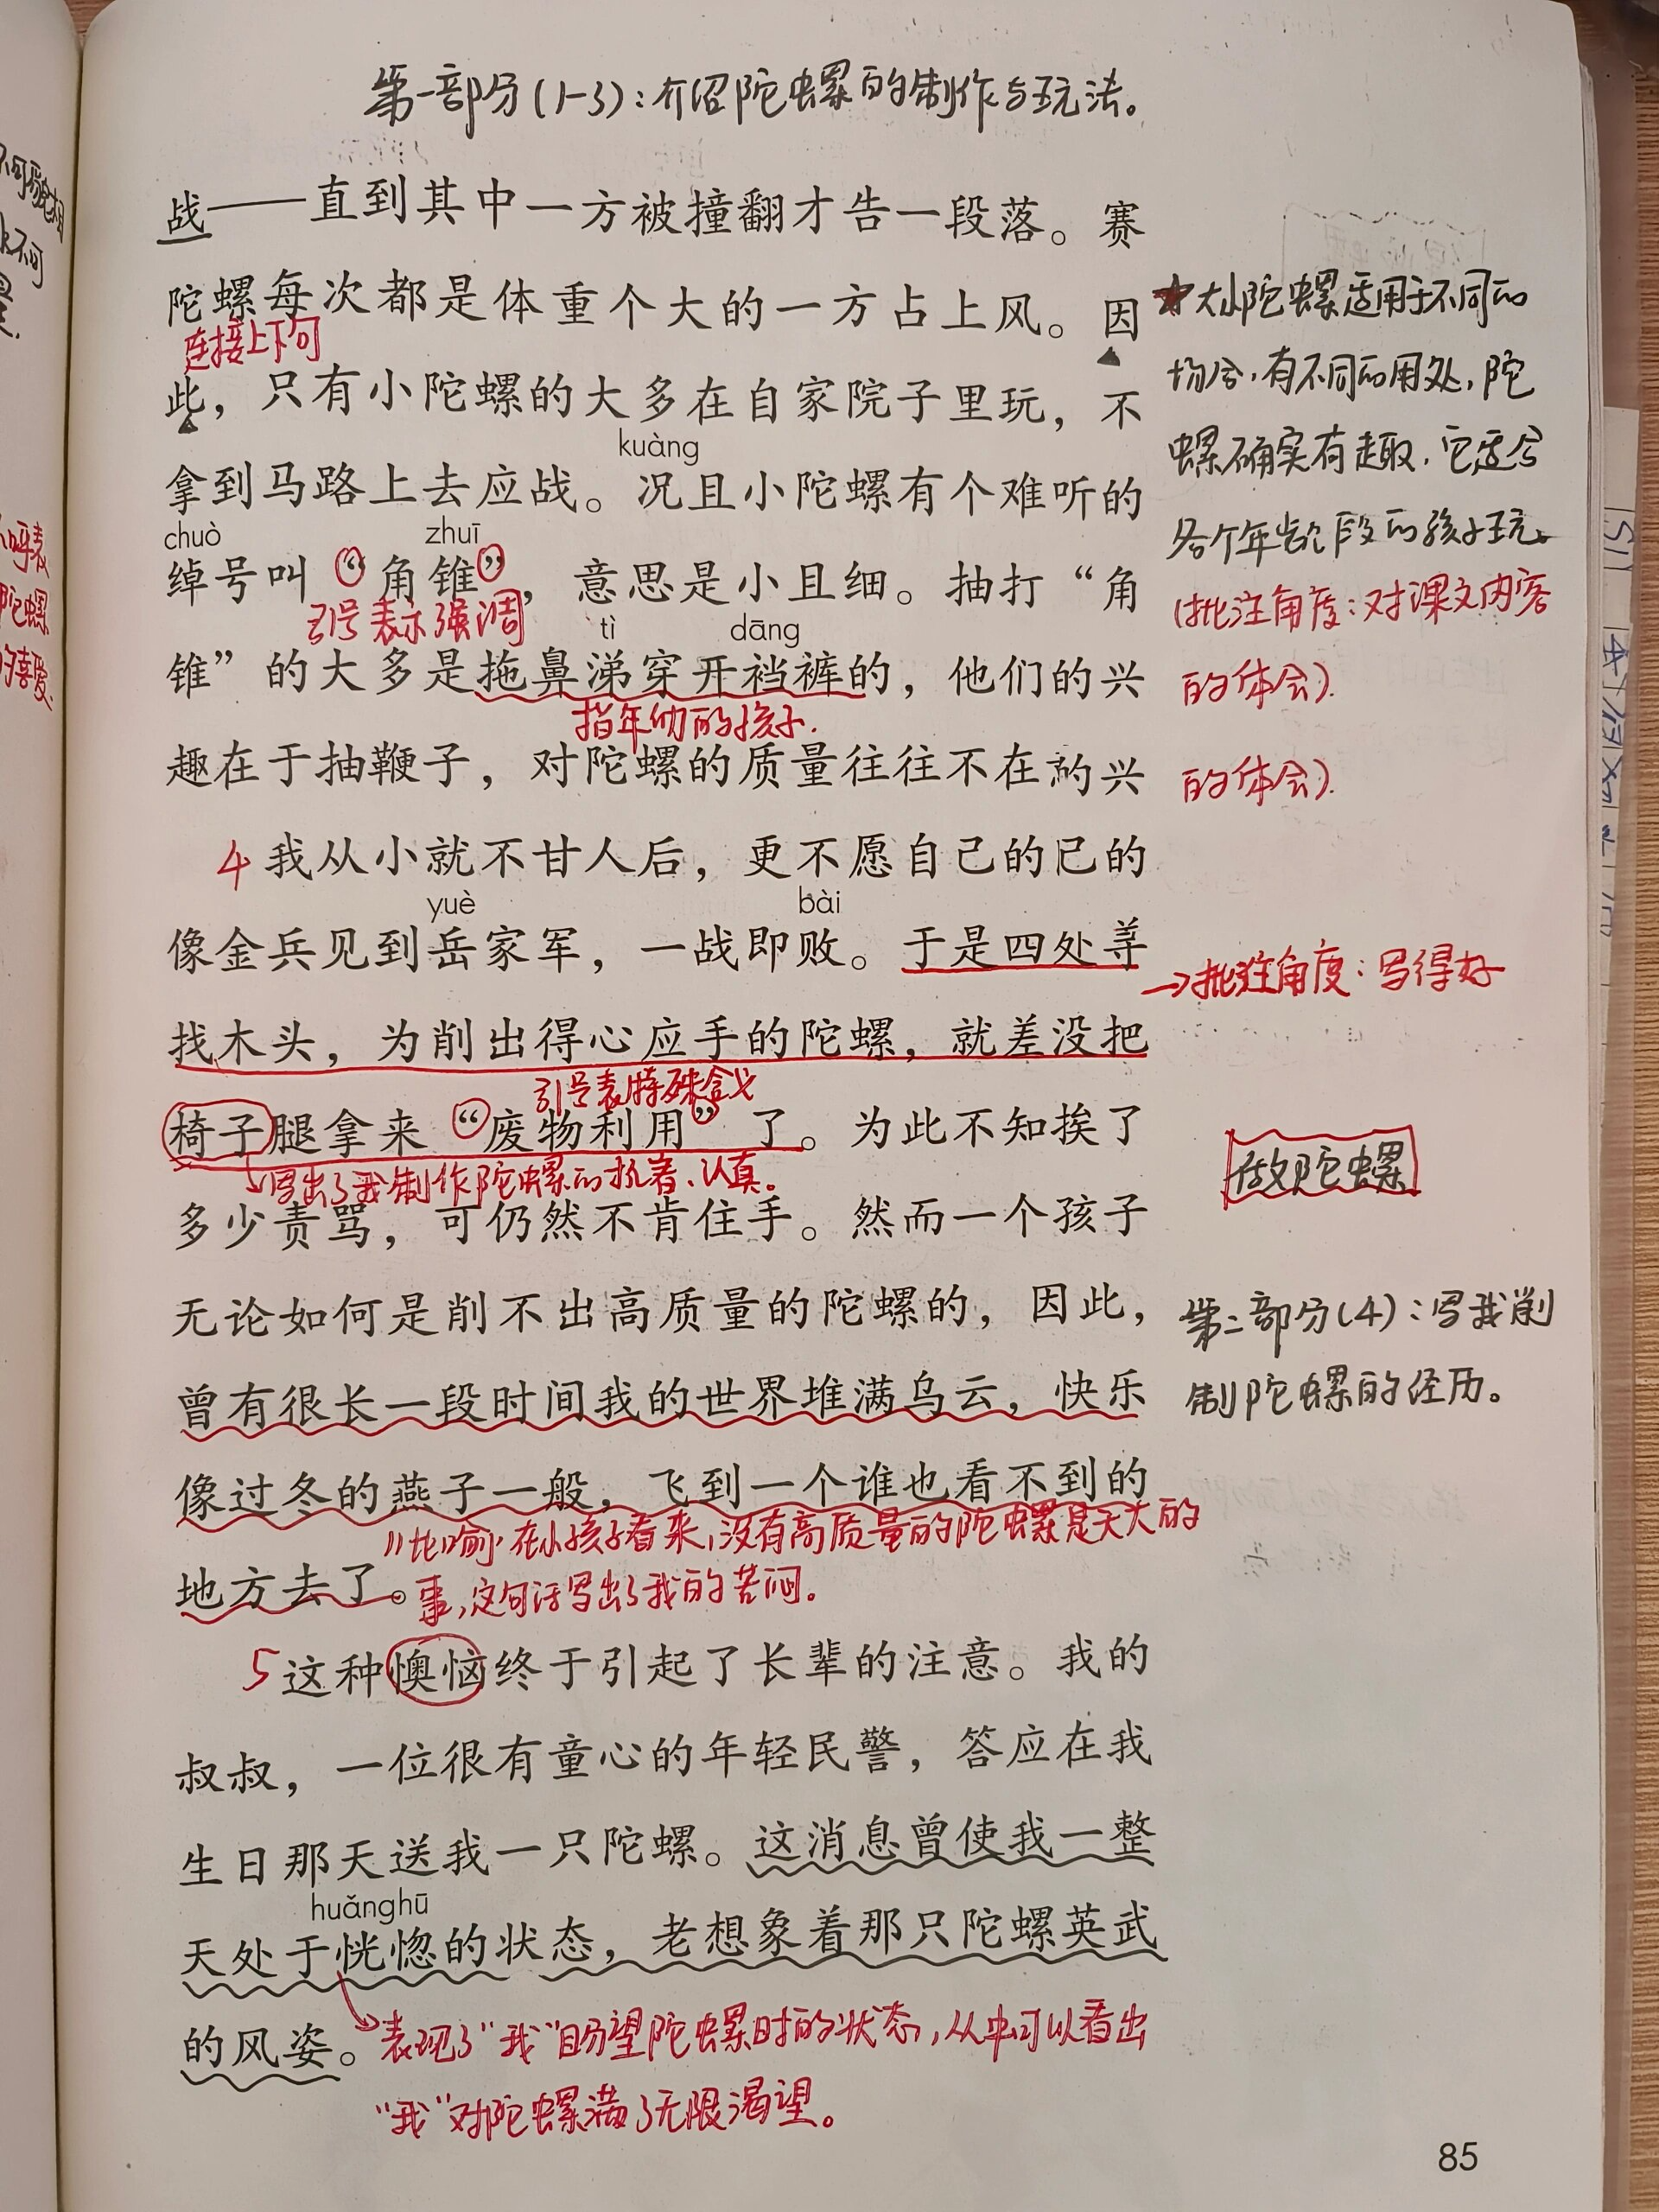 第一部分(1-3)：介绍陀螺的制作与玩法。
战——直到其中一方被撞翻才告一段落。赛
陀螺每次都是体重个大的一方占上风。因
连接上下句
此，只有小陀螺的大多在自家院子里玩，不
kuàng
拿到马路上去应战。况且小陀螺有个难听的
chuò zhuī
绰号叫“角锥”，意思是小且细。抽打“角
引号表示强调
tì dāng
锥”的大多是拖鼻涕穿开裆裤的，他们的兴
指年幼的孩子.
趣在于抽鞭子，对陀螺的质量往往不在的兴
大小陀螺适用于不同的
场合，有不同的用处，陀
螺确实有趣，它适合
各个年龄段的孩子玩。
(批注角度：对课文内容
的体会).
的体会).
4 我从小就不甘人后，更不愿自己的已的
yuè bài
像金兵见到岳家军，一战即败。于是四处寻
→批注角度：写得好
找木头，为削出得心应手的陀螺，就差没把
引号表特殊含义
椅子腿拿来“废物利用”了。为此不知挨了
写出了我制作陀螺的执着、认真。
做陀螺
多少责骂，可仍然不肯住手。然而一个孩子
无论如何是削不出高质量的陀螺的，因此，
第二部分(4)：写我削
制陀螺的经历。
曾有很长一段时间我的世界堆满乌云，快乐
像过冬的燕子一般，飞到一个谁也看不到的
比喻 在小孩子看来，没有高质量的陀螺是天大的
地方去了。
事，这句话写出了我的苦闷。
5 这种懊恼终于引起了长辈的注意。我的
叔叔，一位很有童心的年轻民警，答应在我
生日那天送我一只陀螺。这消息曾使我一整
huǎnghū
天处于恍惚的状态，老想象着那只陀螺英武
的风姿。
表现了“我”盼望陀螺时的状态，从中可以看出
“我”对陀螺满了无限渴望。
85